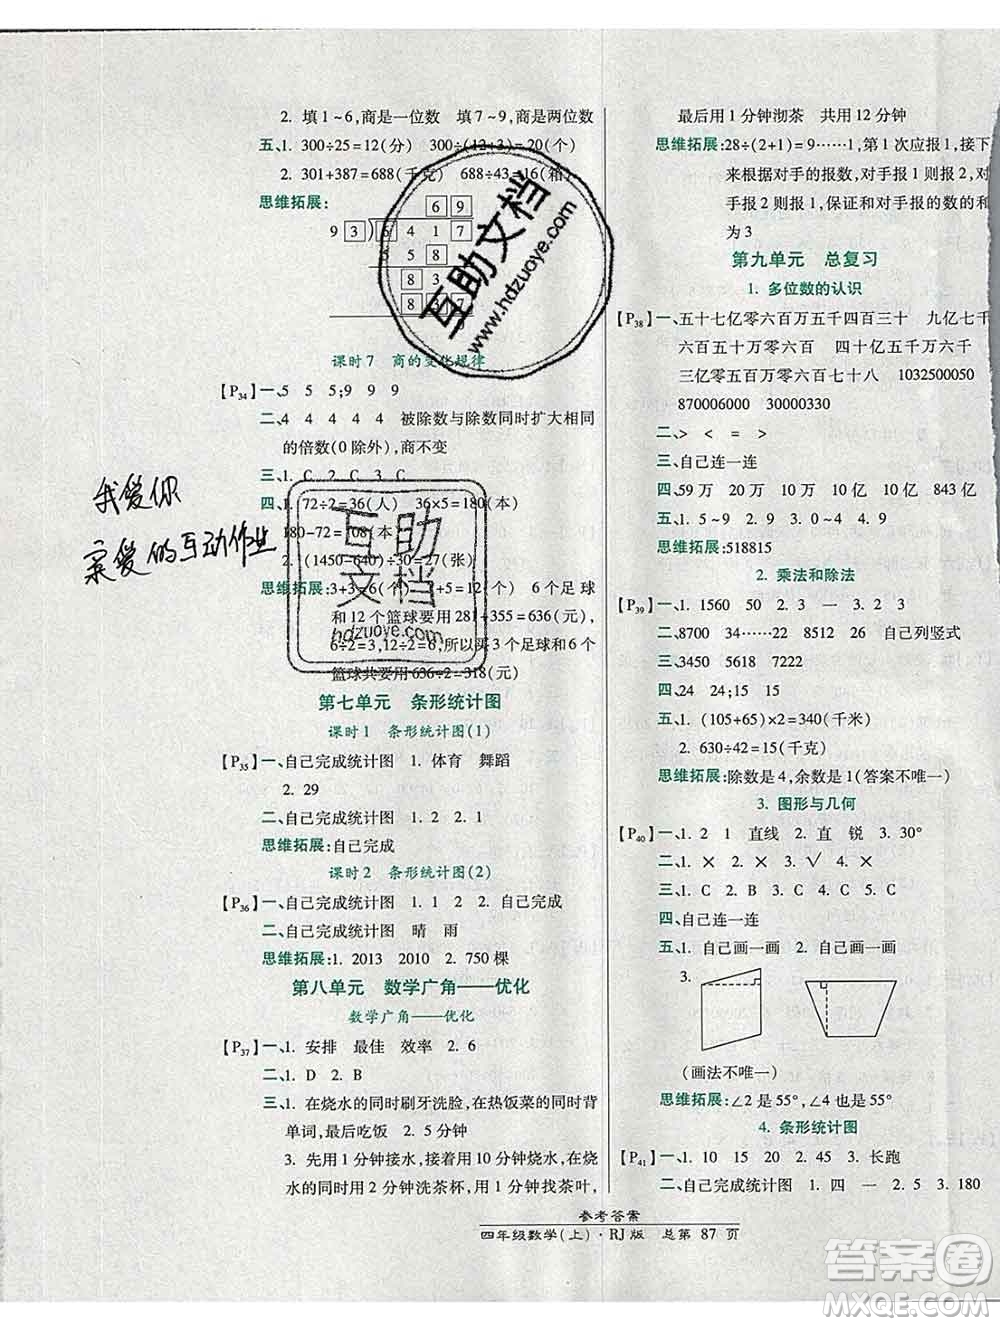 2. 填1~6,商是一位数 填7~9,商是两位数
五、1. 300÷25=12(分) 300÷(12+3)=20(个)
2. 301+387=688(千克) 688÷43=16(箱)
思维拓展:
6 9
9 3 6 4 1 7
5 5 8
8 3
8 3 7
0
课时7 商的变化规律
【P34】一、5 5 5;9 9 9
二、4 4 4 4 被除数与除数同时扩大相同
的倍数(0除外),商不变
三、1. C 2. C 3. C
四、1. 72÷2=36(人) 36×5=180(本)
180-72=108(本)
2. (1450-640)÷30=27(张)
思维拓展:3+3=6(个) 7+5=12(个) 6个足球
和12个篮球要用281+355=636(元),
6÷2=3,12÷2=6,所以买3个足球和6个
篮球共要用636÷2=318(元)
第七单元 条形统计图
课时1 条形统计图(1)
【P35】一、自己完成统计图 1. 体育 舞蹈
2. 29
二、自己完成统计图 1. 2 2. 1
思维拓展:自己完成
课时2 条形统计图(2)
【P36】一、自己完成统计图 1. 1 2 2. 自己完成
二、自己完成统计图 晴 雨
思维拓展:1. 2013 2010 2. 750棵
第八单元 数学广角——优化
数学广角——优化
【P37】一、1. 安排 最佳 效率 2. 6
二、1. D 2. B 3. A
三、1. 在烧水的同时刷牙洗脸,在热饭菜的同时背
单词,最后吃饭 2. 5分钟
3. 先用1分钟接水,接着用10分钟烧水,在
烧水的同时用2分钟洗茶杯,用1分钟找茶叶,
最后用1分钟沏茶 共用12分钟
思维拓展:28÷(2+1)=9……1,第1次应报1,接下
来根据对手的报数,对手报1则报2,对
手报2则报1,保证和对手报的数的和
为3
第九单元 总复习
1. 多位数的认识
【P38】一、五十七亿零六百万五千四百三十 九亿千
六百五十二万零六百 六千三百八十三亿
三千零五百七十万零六百七十八 1032500050
870006000 30000200000
二、> < = >
三、自己连一连
四、59万 20万 10万 10亿 10亿 843亿
五、1. 5~9 2. 9 3. 0~4 4. 0
思维拓展:518815
2. 乘法和除法
【P39】一、1. 1560 50 2. 3 一 3. 2 3
二、8700 34……22 8512 26 自己列竖式
三、3450 5618 7222
四、24 24;15 15
五、1. (105+65)×2=340(千米)
2. 630÷42=15(千克)
思维拓展:除数是4,余数是1(答案不唯一)
3. 图形与几何
【P40】一、1. 2 1 直线 2. 直 锐 3. 30°
二、1. × 2. × 3. √ 4. ×
三、1. C 2. B 3. B 4. C
四、自己连一连
五、1. 自己画一画 2. 自己画一画
3.
(画法不唯一)
思维拓展:∠2是55°,∠4是55°
4. 条形统计图
【P41】一、1. 10 15 20 2. 45 3. 长跑
二、自己完成统计图 1. 四 一 2. 5 3. 180
我爱你
亲爱的互动作业
互助文档
www.hdzuoye.com
互助
文档
hdzuoye.com
参考答案
四年级数学(上)·RJ版 总第 87 页
答案圈
MXQE.COM